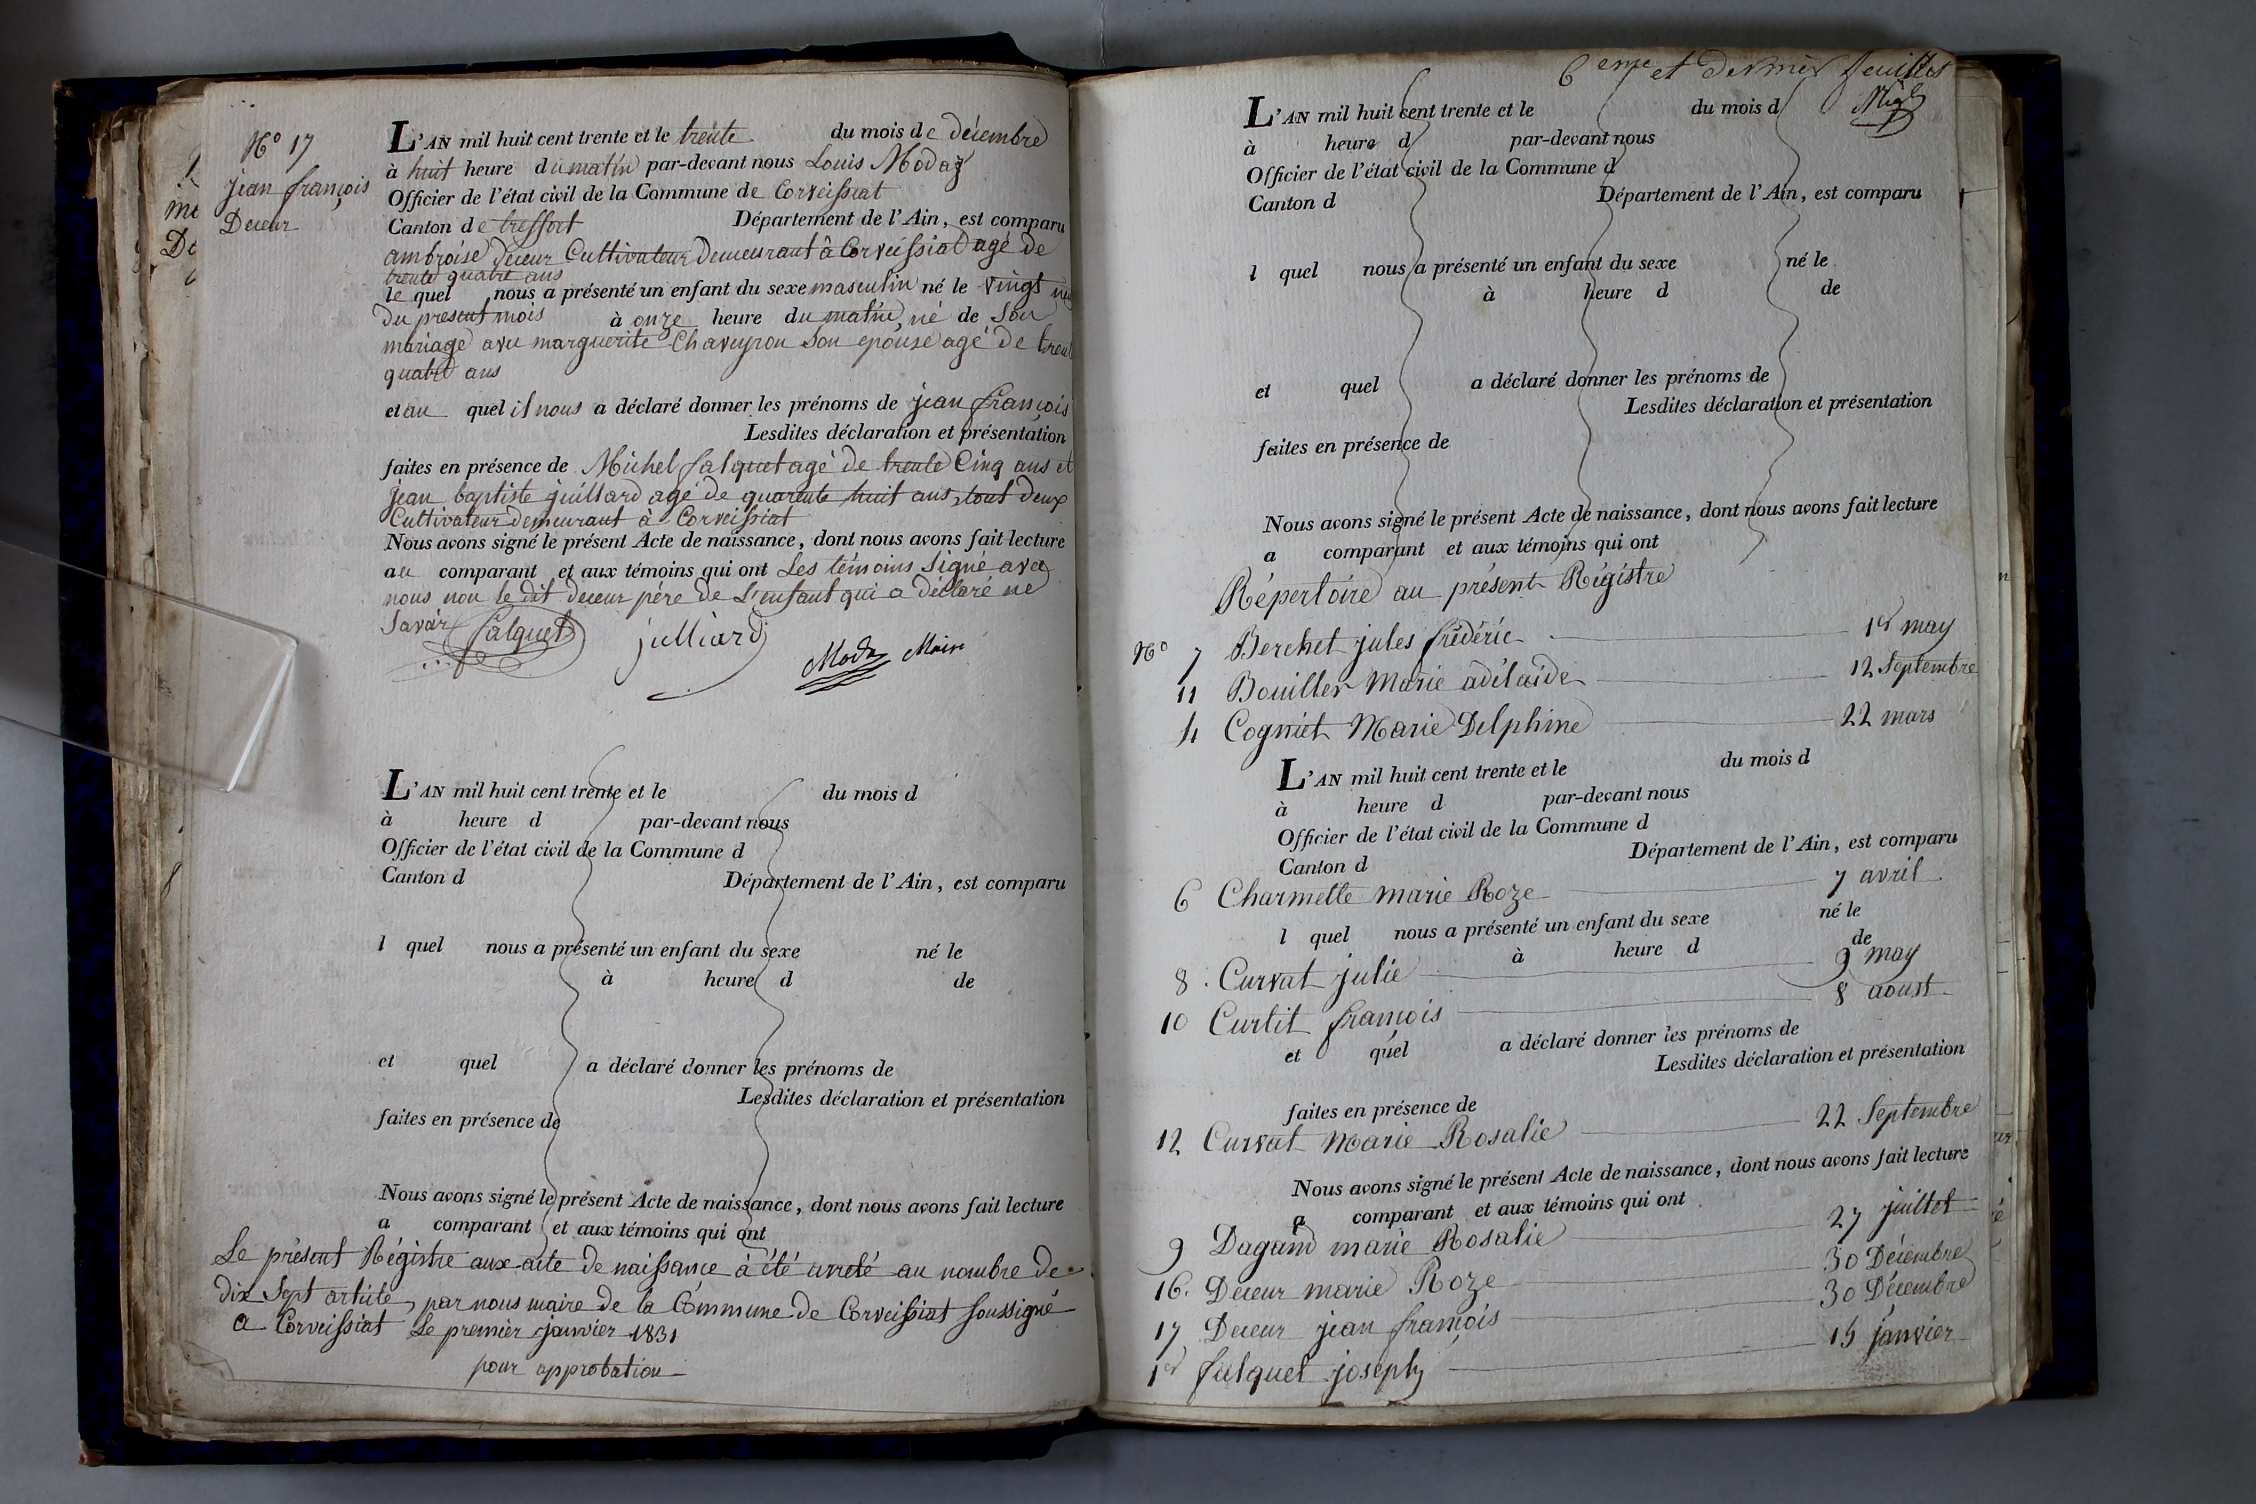 N° 17
jean françois
Deceur
L'AN mil huit cent trente et le trente du mois de décembre
à huit heure du matin par-devant nous Louis Modaz
Officier de l'état civil de la Commune de Corveissiat
Canton de treffort Département de l'Ain, est comparu
ambroise deceur Cultivateur Demeurant à Corveissiat agé de
trente quatre ans
le quel nous a présenté un enfant du sexe masculin né le vingt
du present mois à onze heure du matin, né de Son
mariage avec marguerite Chaveyron Son epouse agé de
quatre ans
et au quel il nous a déclaré donner les prénoms de jean françois
Lesdites déclaration et présentation
faites en présence de Michel falquet agé de trente Cinq ans et
jean baptiste juillard agé de quarente huit ans, tout deux
Cultivateur demeurant à Corveissiat
Nous avons signé le présent Acte de naissance, dont nous avons fait lecture
au comparant et aux témoins qui ont Les témoins Signé avec
nous non le dit deceur pére de L'enfant qui a déclaré ne
Savoir falquet julliard Modaz Maire
L'AN mil huit cent trente et le du mois d
à heure d par-devant nous
Officier de l'état civil de la Commune d
Canton d Département de l'Ain, est comparu
l quel nous a présenté un enfant du sexe né le
à heure d de
et quel a déclaré donner les prénoms de
Lesdites déclaration et présentation
faites en présence de
Nous avons signé le présent Acte de naissance, dont nous avons fait lecture
a comparant et aux témoins qui ont
Le présent Régistre aux acte de naissance à été arreté au nombre de
dix Sept article, par nous maire de la Commune de Corveissiat soussigné
a Corveissiat Le premièr janvier 1831
pour approbation
6eme et dernièr feuillet
L'AN mil huit cent trente et le du mois d
à heure d par-devant nous
Officier de l'état civil de la Commune d
Canton d Département de l'Ain, est comparu
l quel nous a présenté un enfant du sexe né le
à heure d de
et quel a déclaré donner les prénoms de
Lesdites déclaration et présentation
faites en présence de
Nous avons signé le présent Acte de naissance, dont nous avons fait lecture
a comparant et aux témoins qui ont
Répertoire au présent Régistre
N° 7 Berchet jules frédéric 1er may
11 Bouiller Marie adélaide 12 Septembre
4 Cogniet Marie Delphine 22 mars
L'AN mil huit cent trente et le du mois d
à heure d par-devant nous
Officier de l'état civil de la Commune d
Canton d Département de l'Ain, est comparu
6 Charmette marie Roze 7 avril
l quel nous a présenté un enfant du sexe né le
à heure d de
8 Curvat julie 9 may
10 Curtit françois 8 aoust
et quel a déclaré donner les prénoms de
Lesdites déclaration et présentation
faites en présence de
12 Curvat Marie Rosalie 22 Septembre
Nous avons signé le présent Acte de naissance, dont nous avons fait lecture
a comparant et aux témoins qui ont
9 Dagand marie Rosalie 27 juillet
16. Deceur marie Roze 30 Décembre
17 Deceur jean françois 30 Décembre
1er falquet joseph 15 janvier